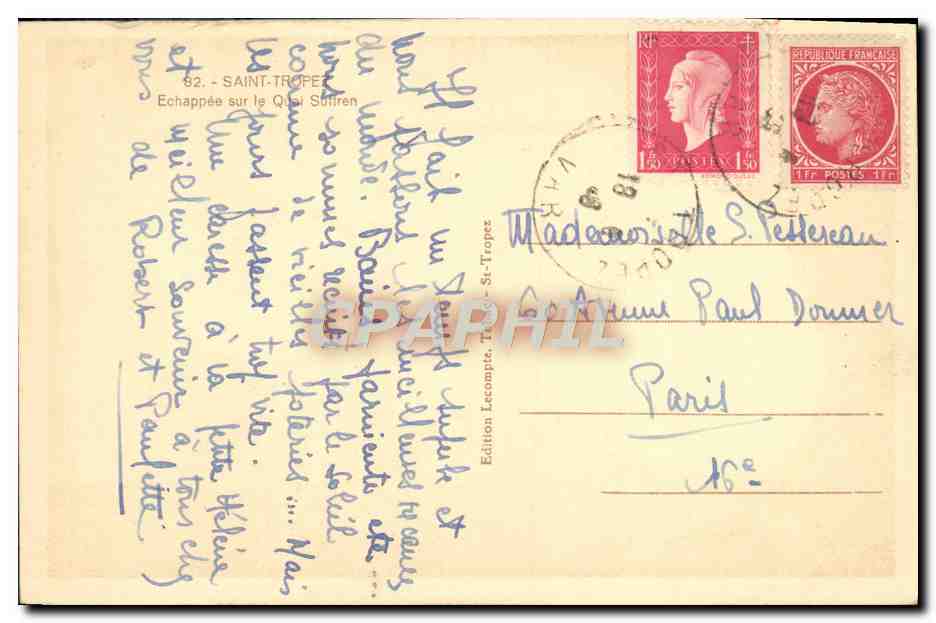 82. - SAINT-TROPEZ
Echappée sur le Quai Suffren
Il fait un temps superbe et
nous passons les meilleures vacances
du monde. Bains, farniente etc...
nous sommes recuits par le soleil
comme de vieilles poteries... Mais
les jours passent trop vite.
Une caresse à la petite Hélène
et meilleur souvenir à tous chez
vous de Robert et Paulette
Edition Lecompte, St-Tropez
RF
1,50 POSTES 1,50
REPUBLIQUE FRANÇAISE
1 Fr POSTES 1 Fr
VAR
18
Mademoiselle S. Pessereau
60 Avenue Paul Doumer
Paris
16e
CPAPHIL